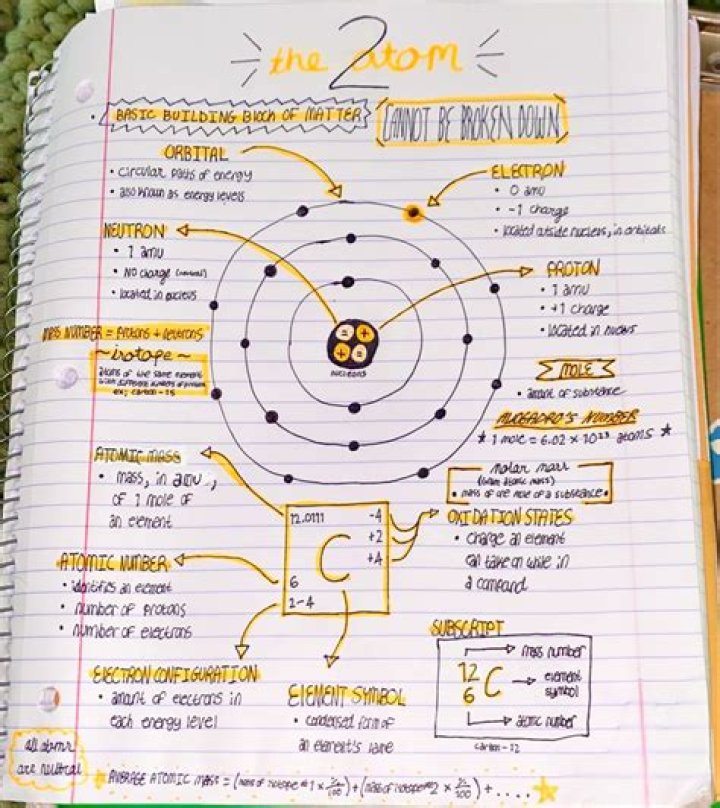 the 2 atom
• BASIC BUILDING BLOCK OF MATTER
CANNOT BE BROKEN DOWN
ORBITAL
• circular paths of energy
• also known as energy levels
ELECTRON
• 0 amu
• -1 charge
• located outside nucleus, in orbitals
NEUTRON
• 1 amu
• NO charge (neutral)
• located in nucleus
PROTON
• 1 amu
• +1 charge
• located in nucleus
nucleons
MASS NUMBER = Protons + neutrons
~ isotope ~
atoms of the same element
with different numbers of
ex; carbon-15
MOLE
• amount of substance
AVOGADRO'S NUMBER
* 1 mole = 6.02 x 10²³ atoms *
molar mass
(gram atomic mass)
• mass of one mole of a substance •
ATOMIC MASS
• mass, in amu,
of 1 mole of
an element
12.0111
-4
+2
+4
C
6
2-4
OXIDATION STATES
• charge an element
can take on while in
a compound
ATOMIC NUMBER
• identifies an element
• number of protons
• number of electrons
ELECTRON CONFIGURATION
• amount of electrons in
each energy level
ELEMENT SYMBOL
• condensed form of
an element's name
SUBSCRIPT
mass number
12
6
C
element
symbol
atomic number
carbon-12
all atoms
are neutral
AVERAGE ATOMIC MASS = (mass of isotope #1 x %/100) + (mass of isotope #2 x %/100) + ....